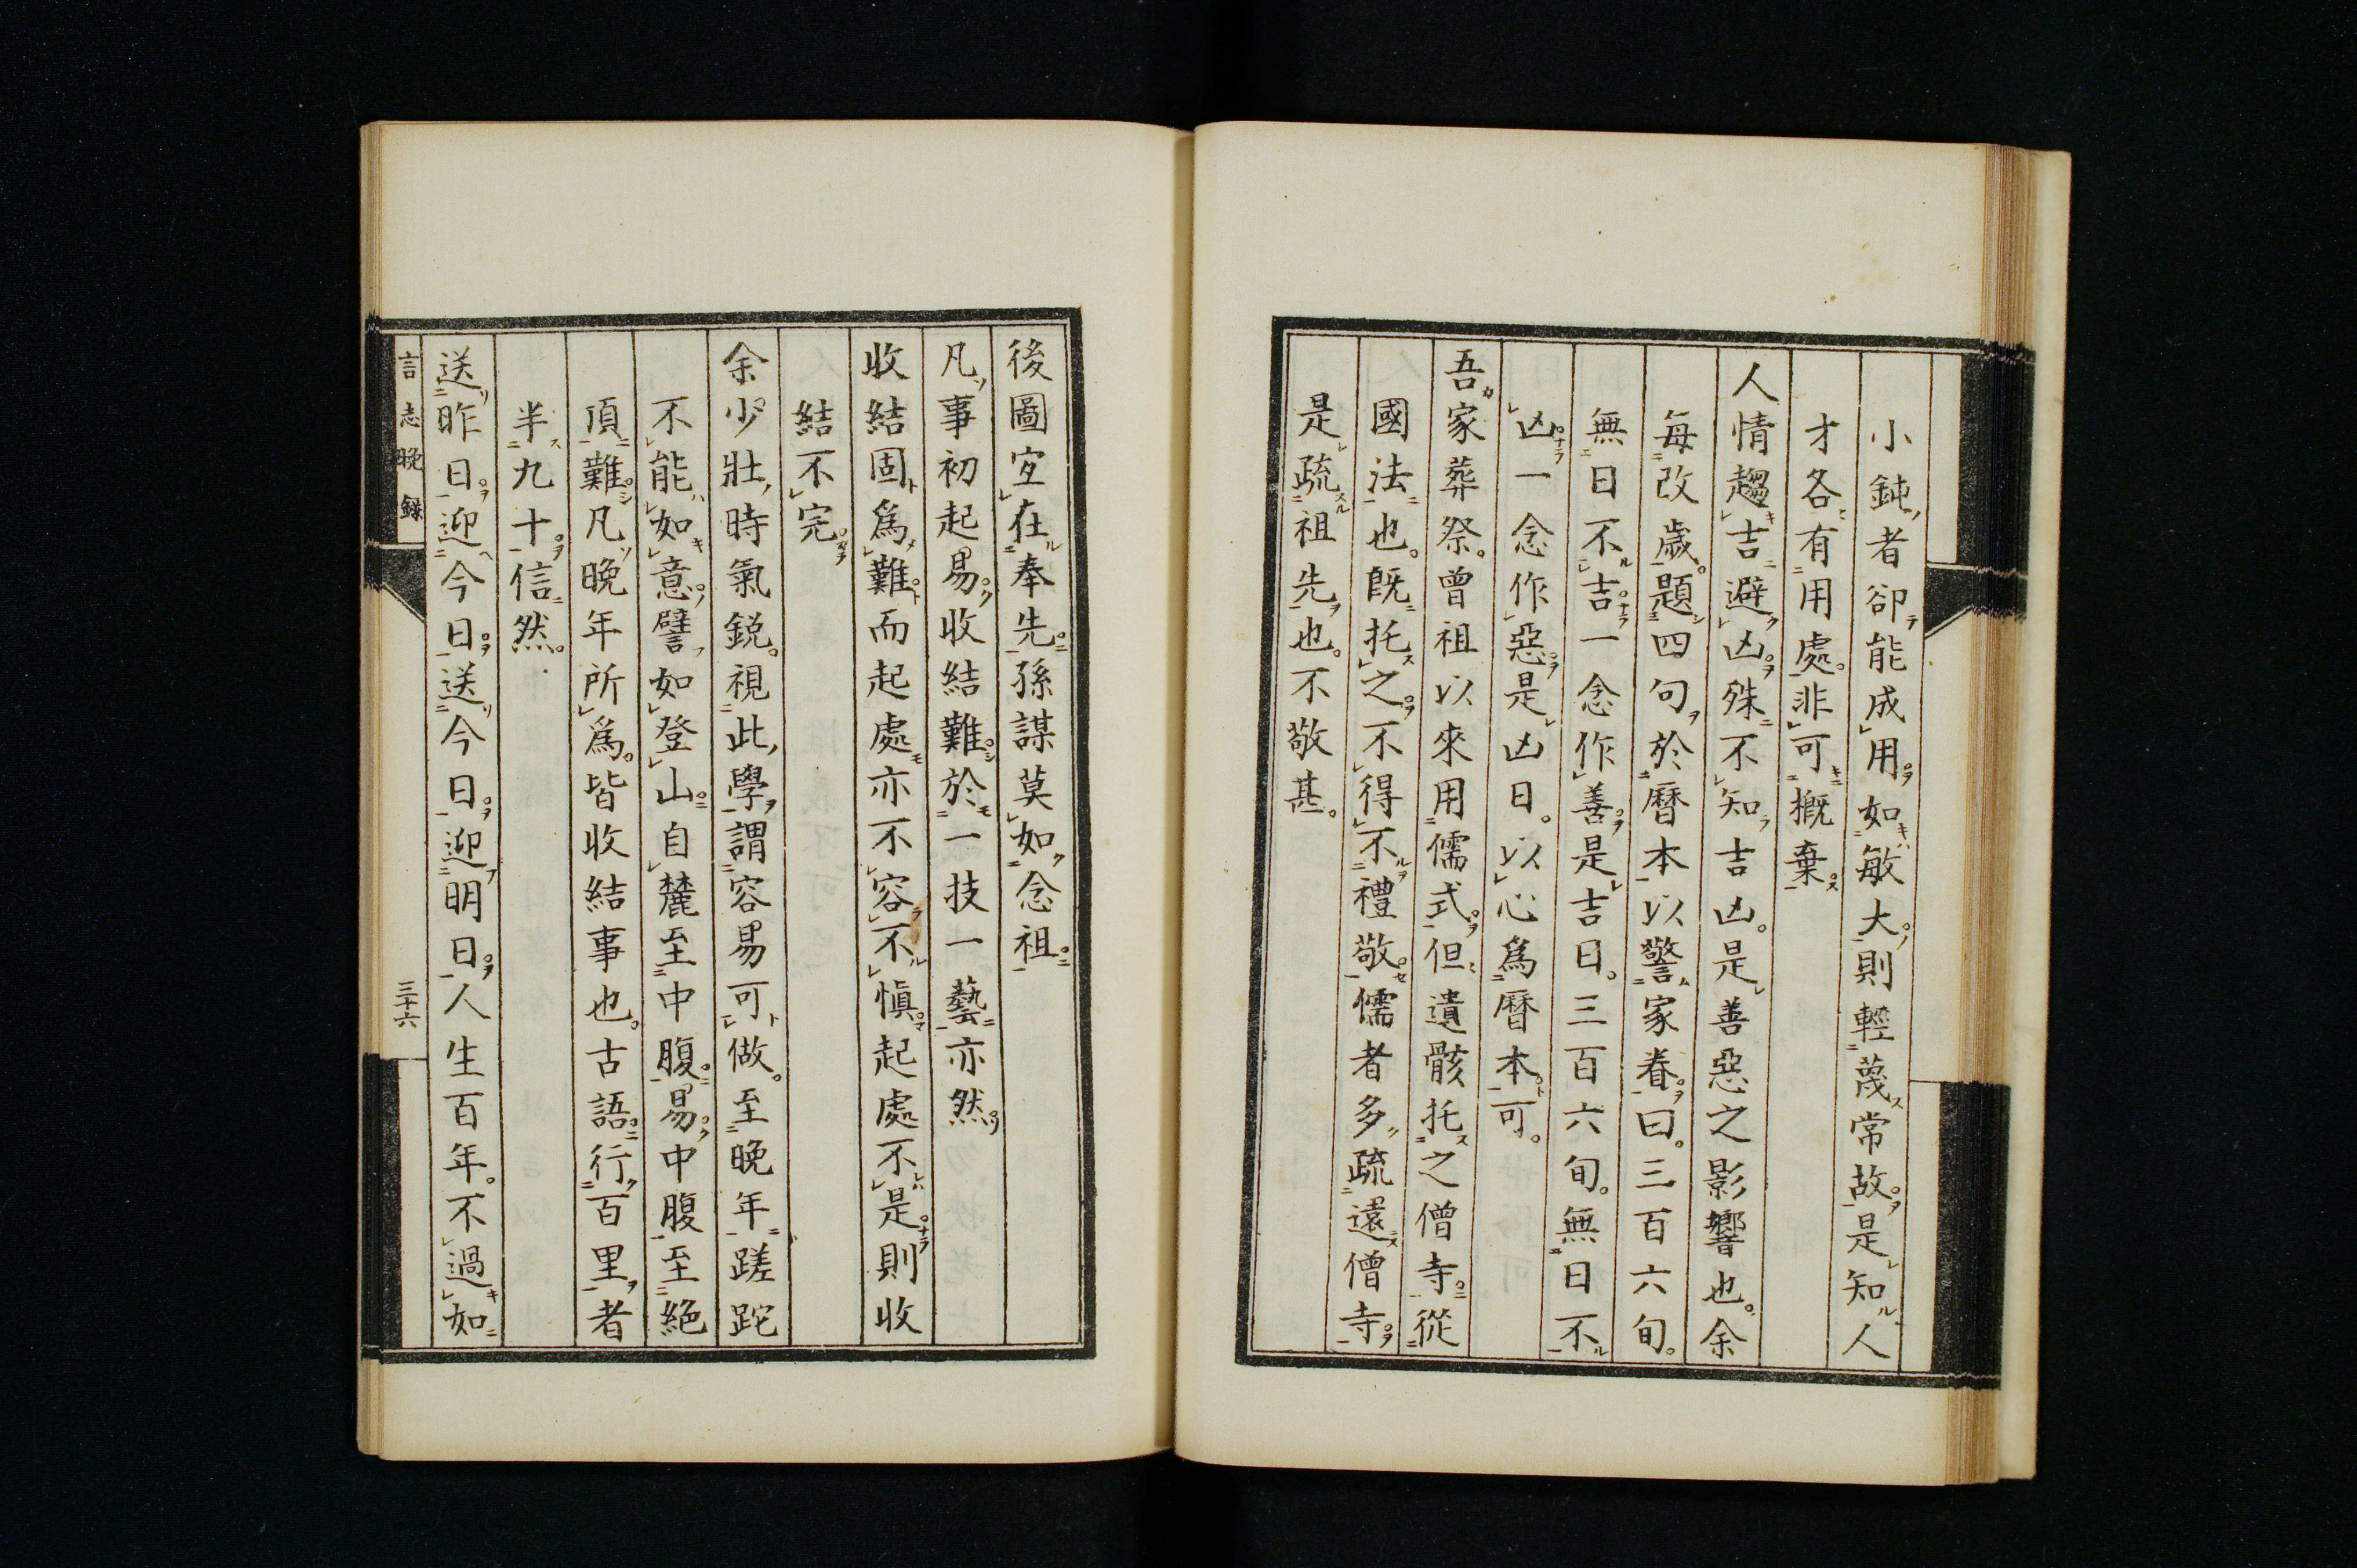 小鈍者卻能成用如敏大則輕蔑常故是知人
才各有用處非可概棄
人情趨吉避凶殊不知吉凶是善惡之影響也余
每改歲題四句於曆本以警家眷曰三百六旬
無日不吉一念作善是吉日三百六旬無日不
凶一念作惡是凶日以心為曆本可
吾家葬祭曾祖以來用儒式但遺骸托之僧寺從
國法也既托之不得不禮敬儒者多疏遠僧寺
是疏祖先也不敬甚
後圖宜在奉先孫謀莫如念祖
凡事初起易收結難於一技一藝亦然
收結固為難而起處亦不容不慎起處不是則收
結不完
余少壯時氣銳視此學謂容易可做至晚年蹉跎
不能如意譬如登山自麓至中腹易中腹至絕
頂難凡晚年所為皆收結事也古語行百里者
半九十信然
送昨日迎今日送今日迎明日人生百年不過如
言志晚錄
三十六